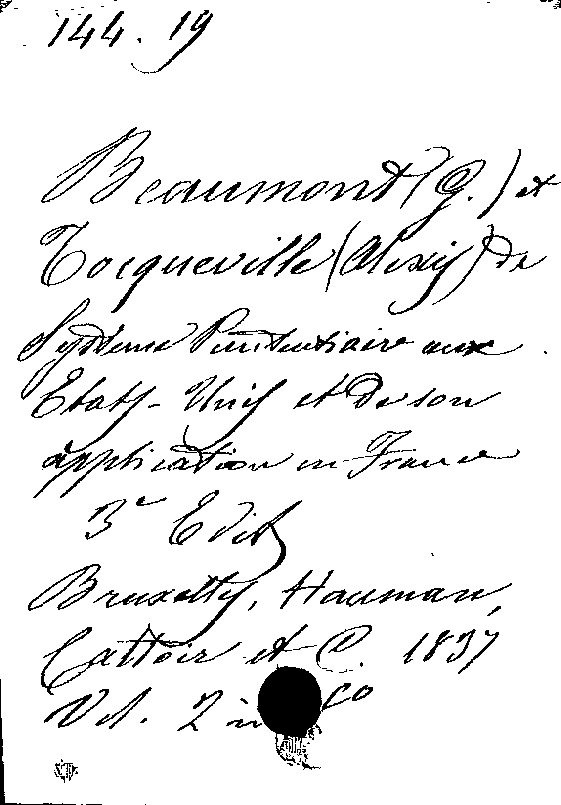 144. 19
Beaumont (G.) et
Tocqueville (Alexis) de
Système Penitentiaire aux
Etats-Unis et de son
application en France
3e Edit
Bruxelles, Hauman,
Cattoir et C. 1837
Vol. 2 in